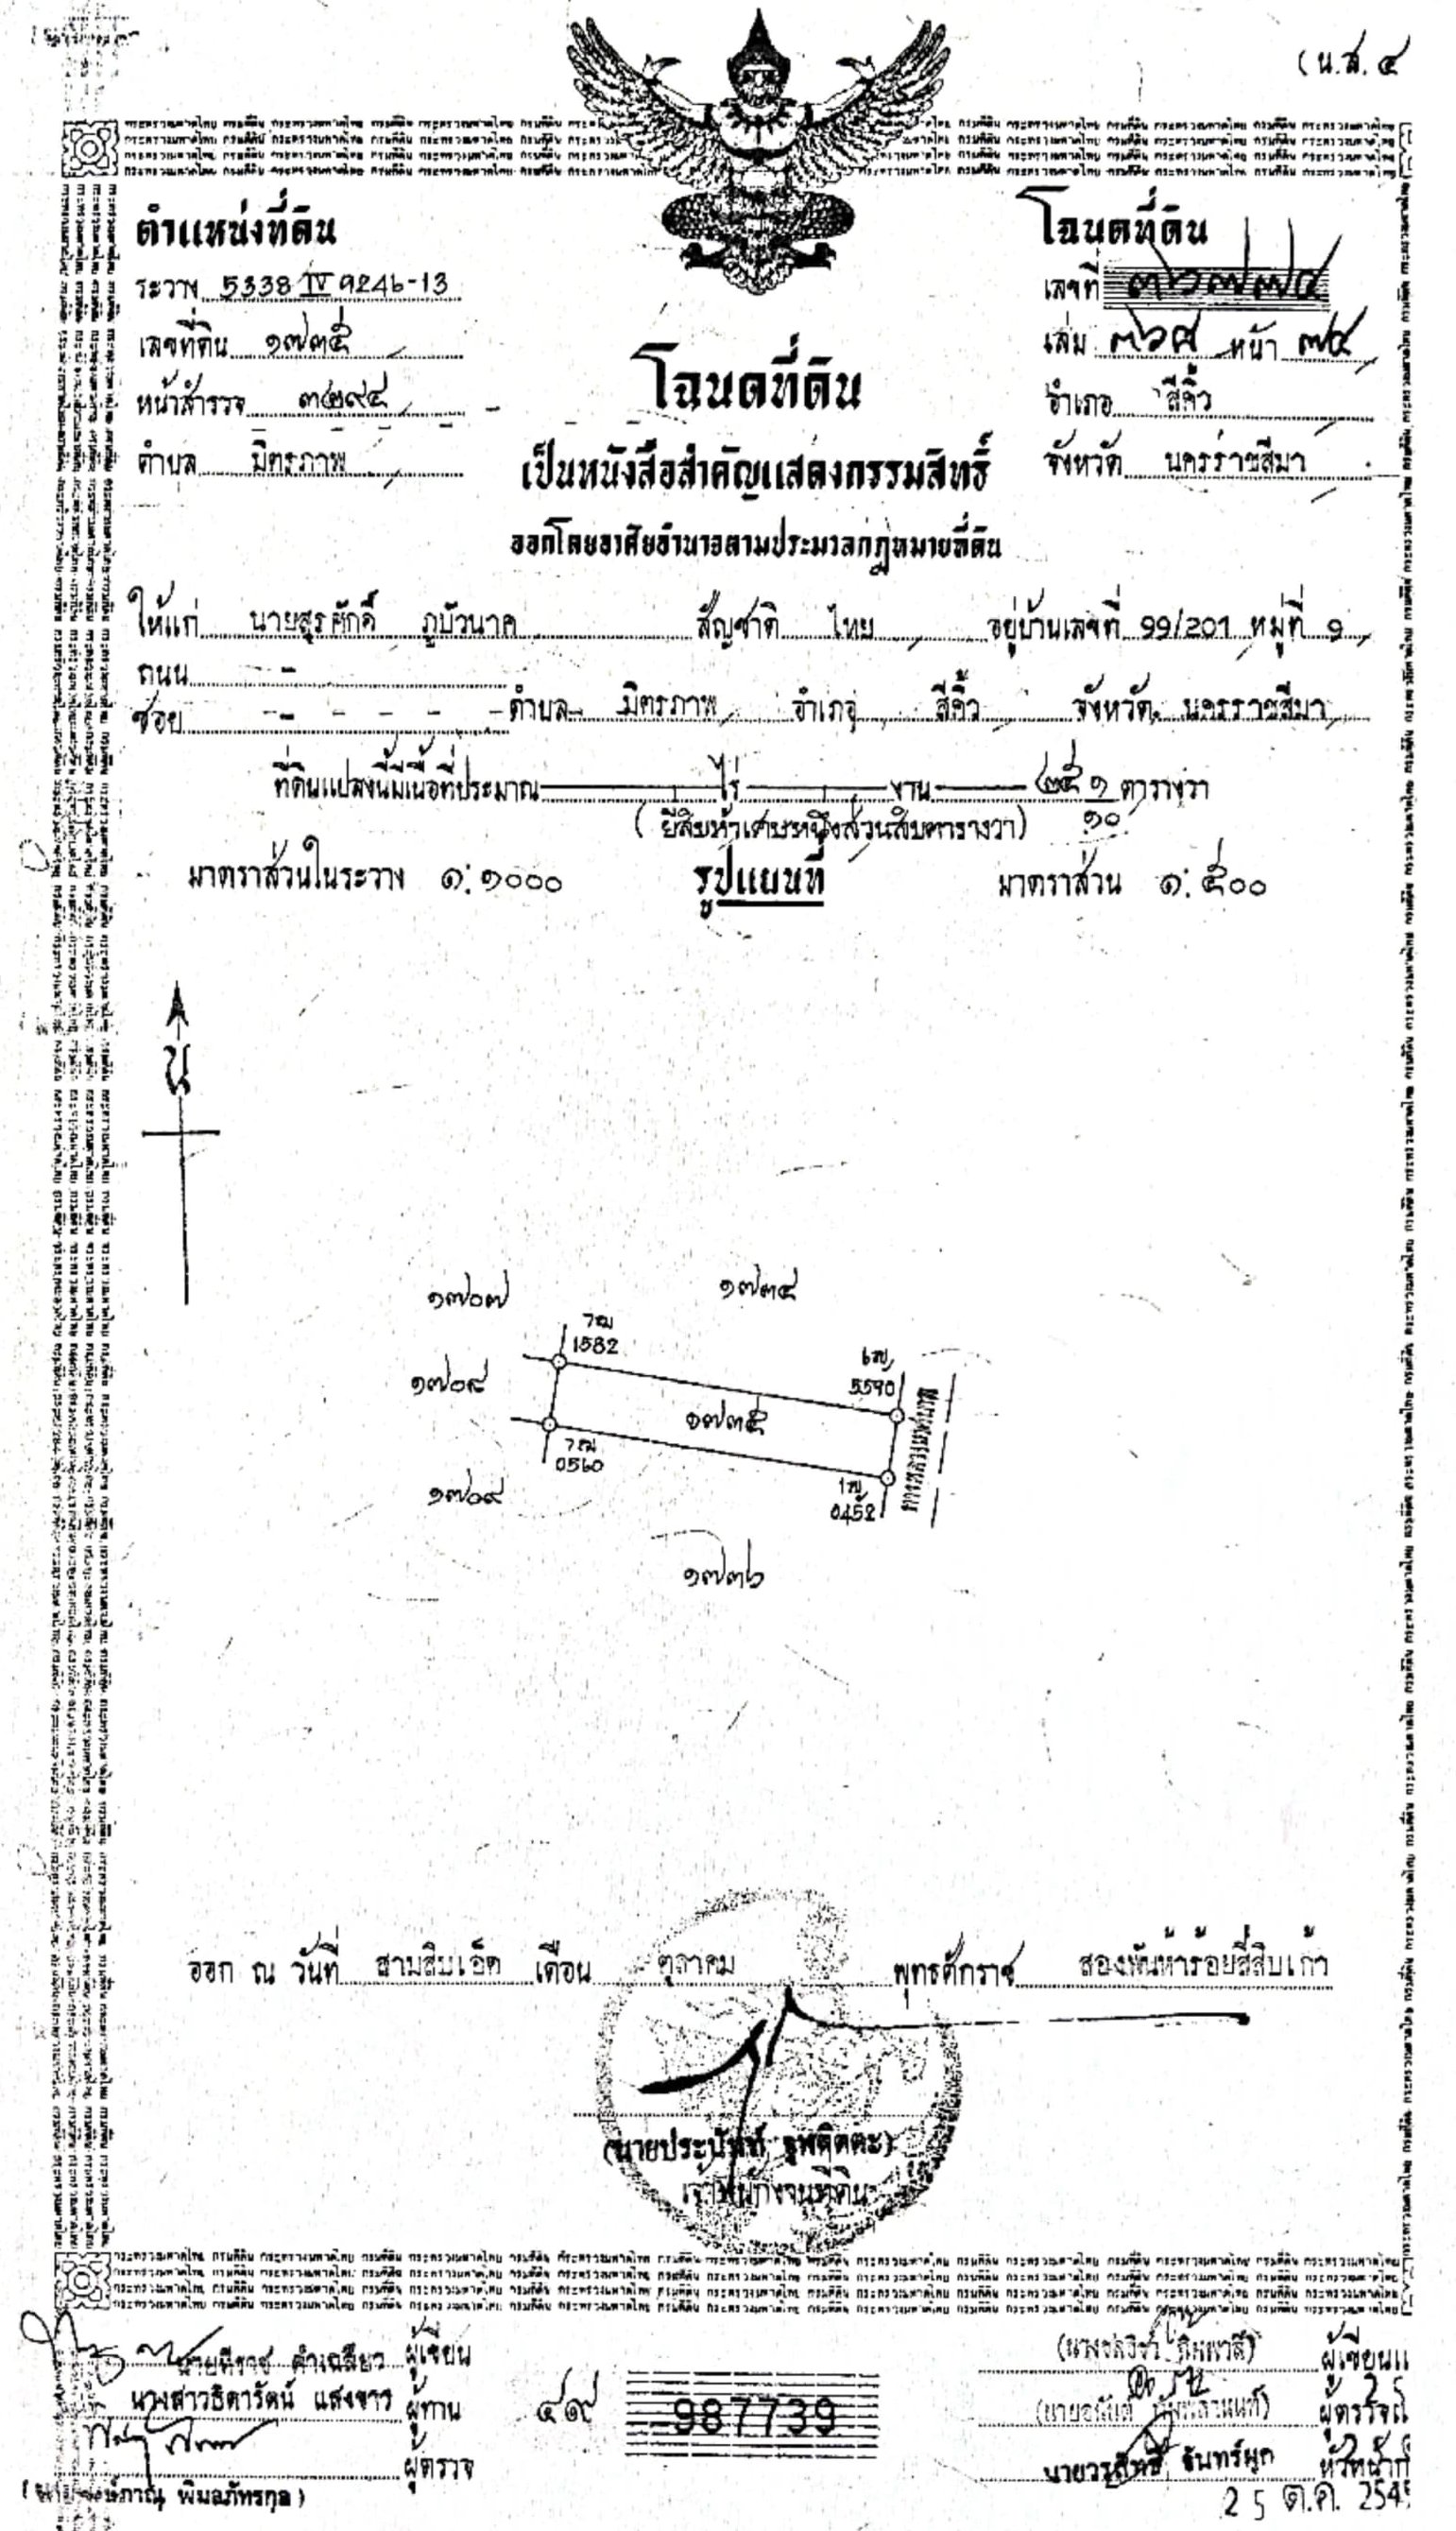 (น.ส. ๔
ตำแหน่งที่ดิน
ระวาง 5338 IV 9246-13
เลขที่ดิน ๑๗๓๕
หน้าสำรวจ ๓๒๙๔
ตำบล มิตรภาพ
โฉนดที่ดิน
เลขที่ ๓๖๗๗๔
เล่ม ๓๖๘ หน้า ๗๔
อำเภอ สีคิ้ว
จังหวัด นครราชสีมา
โฉนดที่ดิน
เป็นหนังสือสำคัญแสดงกรรมสิทธิ์
ออกโดยอาศัยอำนาจตามประมวลกฎหมายที่ดิน
ให้แก่ นายสุรศักดิ์ ภูบัวนาค สัญชาติ ไทย อยู่บ้านเลขที่ 99/201 หมู่ที่ ๑
ถนน -
ซอย - - - - - ตำบล มิตรภาพ อำเภอ สีคิ้ว จังหวัด นครราชสีมา
ที่ดินแปลงนี้มีเนื้อที่ประมาณ - ไร่ - งาน - ๒๕ ๑/๑๐ ตารางวา
( ยี่สิบห้าเศษหนึ่งส่วนสิบตารางวา)
มาตราส่วนในระวาง ๑:๑๐๐๐ รูปแผนที่ มาตราส่วน ๑:๕๐๐
น
๑๗๐๗ ๑๗๓๔
1582
๑๗๐๘
5590
๑๗๓๕
ทางหลวงเทศบาล
0560
๑๗๐๙
0452
๑๗๓๖
ออก ณ วันที่ สามสิบเอ็ด เดือน ตุลาคม พุทธศักราช สองพันห้าร้อยสี่สิบเก้า
เจ้าพนักงานที่ดิน
ผู้เขียน
นางสาวธิดารัตน์ แสงขาว ผู้ทาน
ผู้ตรวจ
พิมลภัทรกุล)
๔๙ 987739
ผู้เขียนแ
ผู้ตรวจแ
นายวรสิทธิ์ จันทร์ผูก หัวหน้าก
25 ต.ค. 254